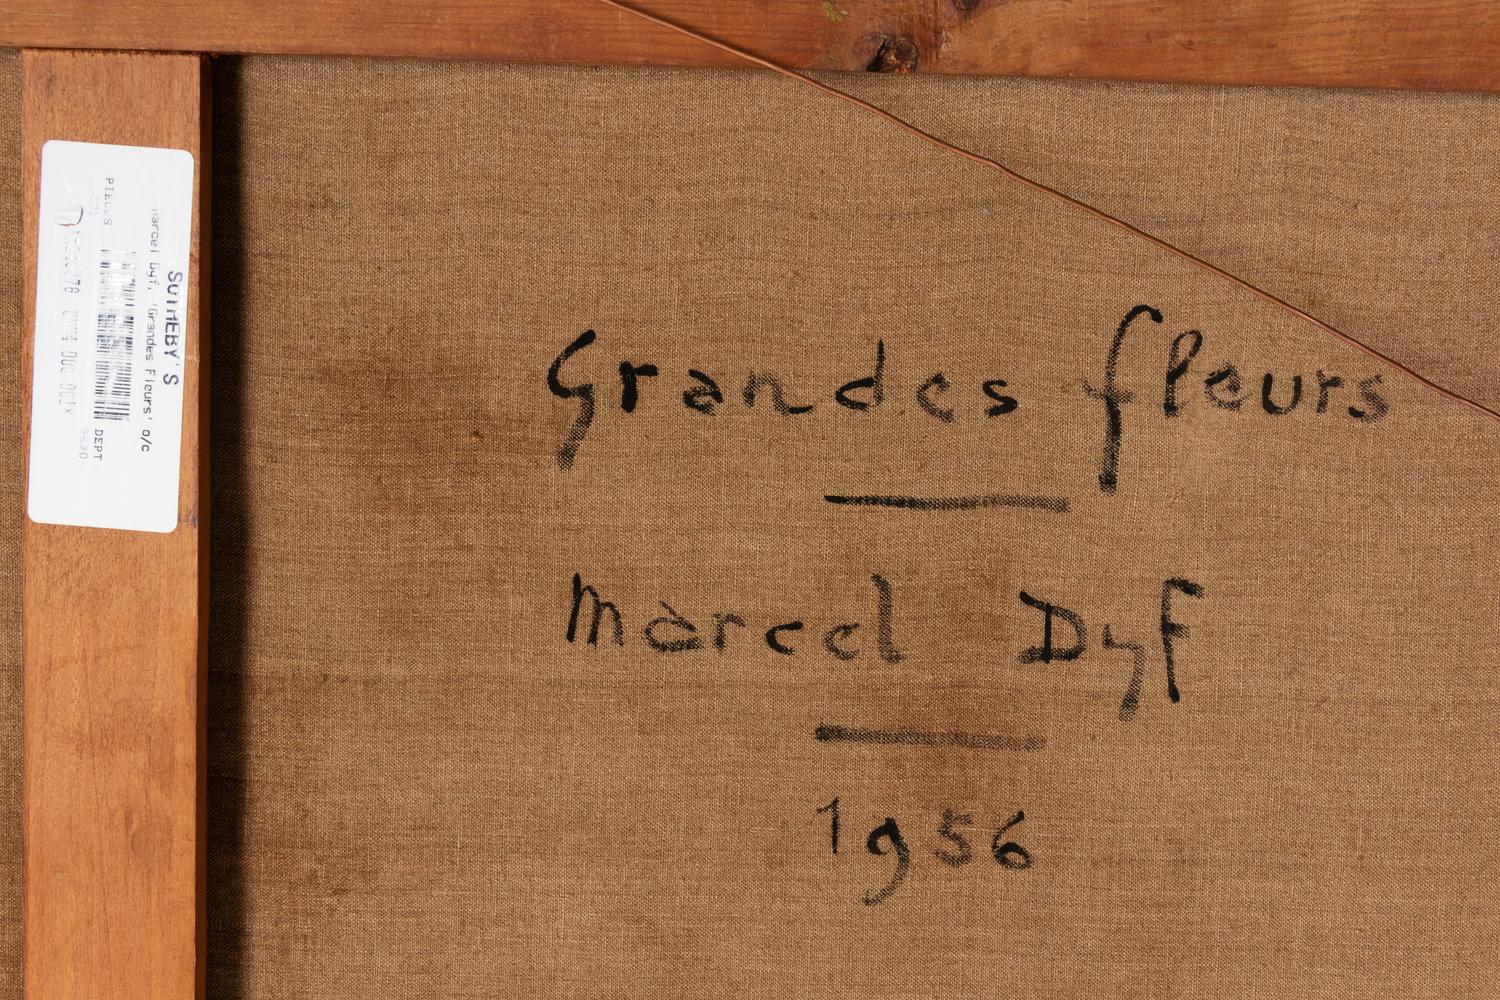 Grandes fleurs
Marcel Dyf
1956
SOTHEBY'S
Marcel Dyf, 'Grandes Fleurs' o/c
PIECES
DEPT